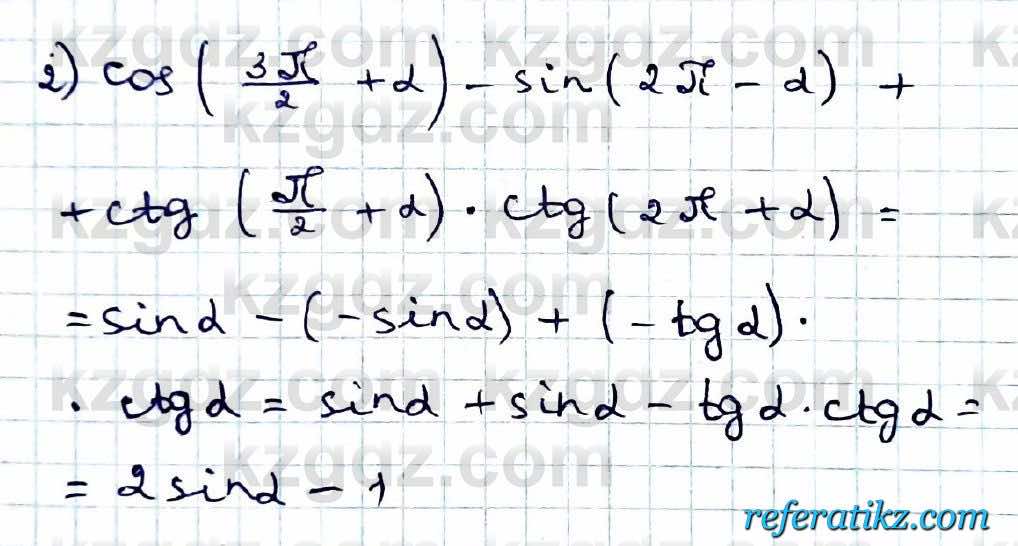 2) cos(3π/2 + α) - sin(2π - α) +
+ ctg(π/2 + α) · ctg(2π + α) =
= sinα - (-sinα) + (-tgα) ·
· ctgα = sinα + sinα - tgα · ctgα =
= 2sinα - 1
kzgdz.com
referatikz.com